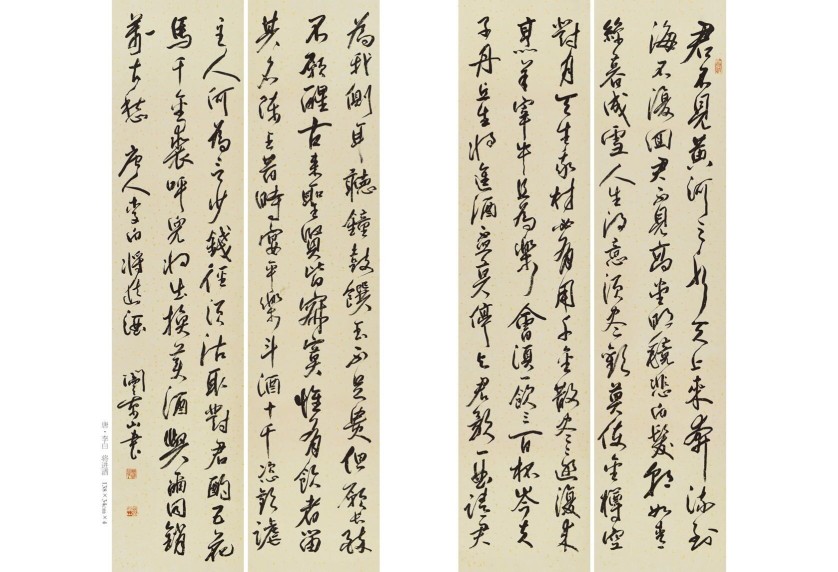 君不見黃河之水天上來奔流到
海不復回君不見高堂明鏡悲白髮朝如青
絲暮成雪人生得意須盡歡莫使金樽空
對月天生我材必有用千金散盡還復來
烹羊宰牛且為樂會須一飲三百杯岑夫
子丹丘生將進酒君莫停與君歌一曲請君
為我側耳聽鐘鼓饌玉不足貴但願長醉
不願醒古來聖賢皆寂寞惟有飲者留
其名陳王昔時宴平樂斗酒十千恣歡謔
主人何為言少錢徑須沽取對君酌五花
馬千金裘呼兒將出換美酒與爾同銷
萬古愁 唐人李白將進酒 山書
唐·李白 將進酒 138×34cm×4